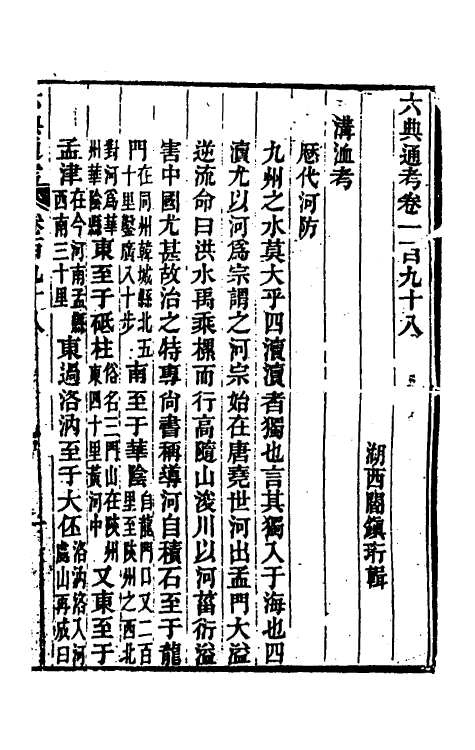 六典通考卷一百九十八
湖西閻鎮珩輯
溝洫考
歷代河防
九州之水莫大乎四瀆瀆者獨也言其獨入于海也四
瀆尤以河為宗謂之河宗始在唐堯世河出孟門大溢
逆流命曰洪水禹乘樏而行高隨山浚川以河菑衍溢
害中國尤甚故治之特專尚書稱導河自積石至于龍
門在同州韓城縣北五十里鑿廣八十步南至于華陰自龍門口又二百里至陝州之西北
對河為華州華陰縣東至于砥柱俗名三門山在陝州東四十里黃河中又東至于
孟津在今河南孟縣西南三十里東過洛汭至于大伾洛汭洛入河處山再成曰